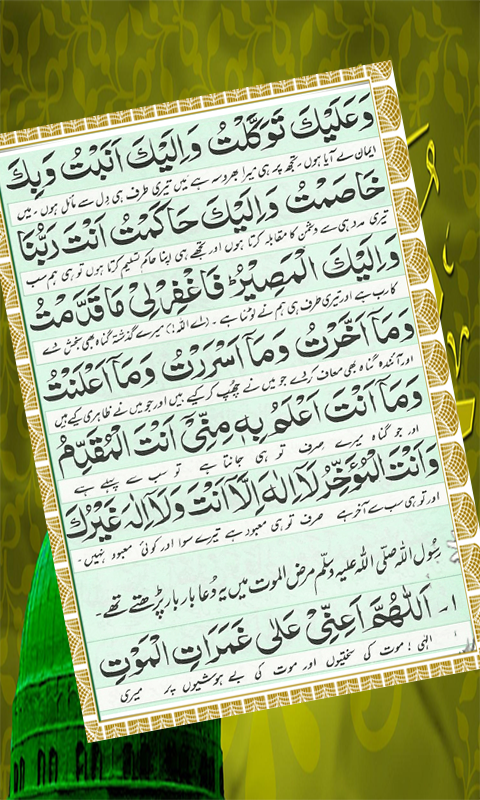 وَعَلَيْكَ تَوَكَّلْتُ وَاِلَيْكَ اَنَبْتُ وَبِكَ
ایمان لے آیا ہوں ، تجھ پر ہی میرا بھروسہ ہے میں تیری طرف ہی دِل سے مائل ہوں ۔ میں
خَاصَمْتُ وَاِلَيْكَ حَاكَمْتُ اَنْتَ رَبُّنَا
تیری مدد ہی سے دشمن کا مقابلہ کرتا ہوں اور تجھے ہی اپنا حاکم تسلیم کرتا ہوں تو ہی ہم سب
وَاِلَيْكَ الْمَصِيْرُ فَاغْفِرْلِىْ مَا قَدَّمْتُ
کا رب ہے اور تیری طرف ہی ہم نے لوٹنا ہے ۔ (اے اللہ!) میرے گذشتہ گناہ بھی بخش دے
وَمَآ اَخَّرْتُ وَمَآ اَسْرَرْتُ وَمَآ اَعْلَنْتُ
اور آئندہ گناہ بھی معاف کردے جو میں نے چھپ کر کیے ہیں اور جو میں نے ظاہری کیے ہیں
وَمَآ اَنْتَ اَعْلَمُ بِهٖ مِنِّىْ اَنْتَ الْمُقَدِّمُ
اور جو گناہ میرے صرف تو ہی جانتا ہے تو سب سے پہلے ہے
وَاَنْتَ الْمُؤَخِّرُ لَآ اِلٰهَ اِلَّآ اَنْتَ وَلَآ اِلٰهَ غَيْرُكَ
اور تو ہی سب سے آخر ہے صرف تو ہی معبود ہے تیرے سوا اور کوئی معبود نہیں ۔
رسُول اللہ صلّی اللہ علیہ وسلّم مرض الموت میں یہ دُعا بار بار پڑھتے تھے۔
۱۔ اَللّٰهُمَّ اَعِنِّىْ عَلٰى غَمَرَاتِ الْمَوْتِ
الٰہی ! موت کی سختیوں اور موت کی بے ہوشیوں پر میری